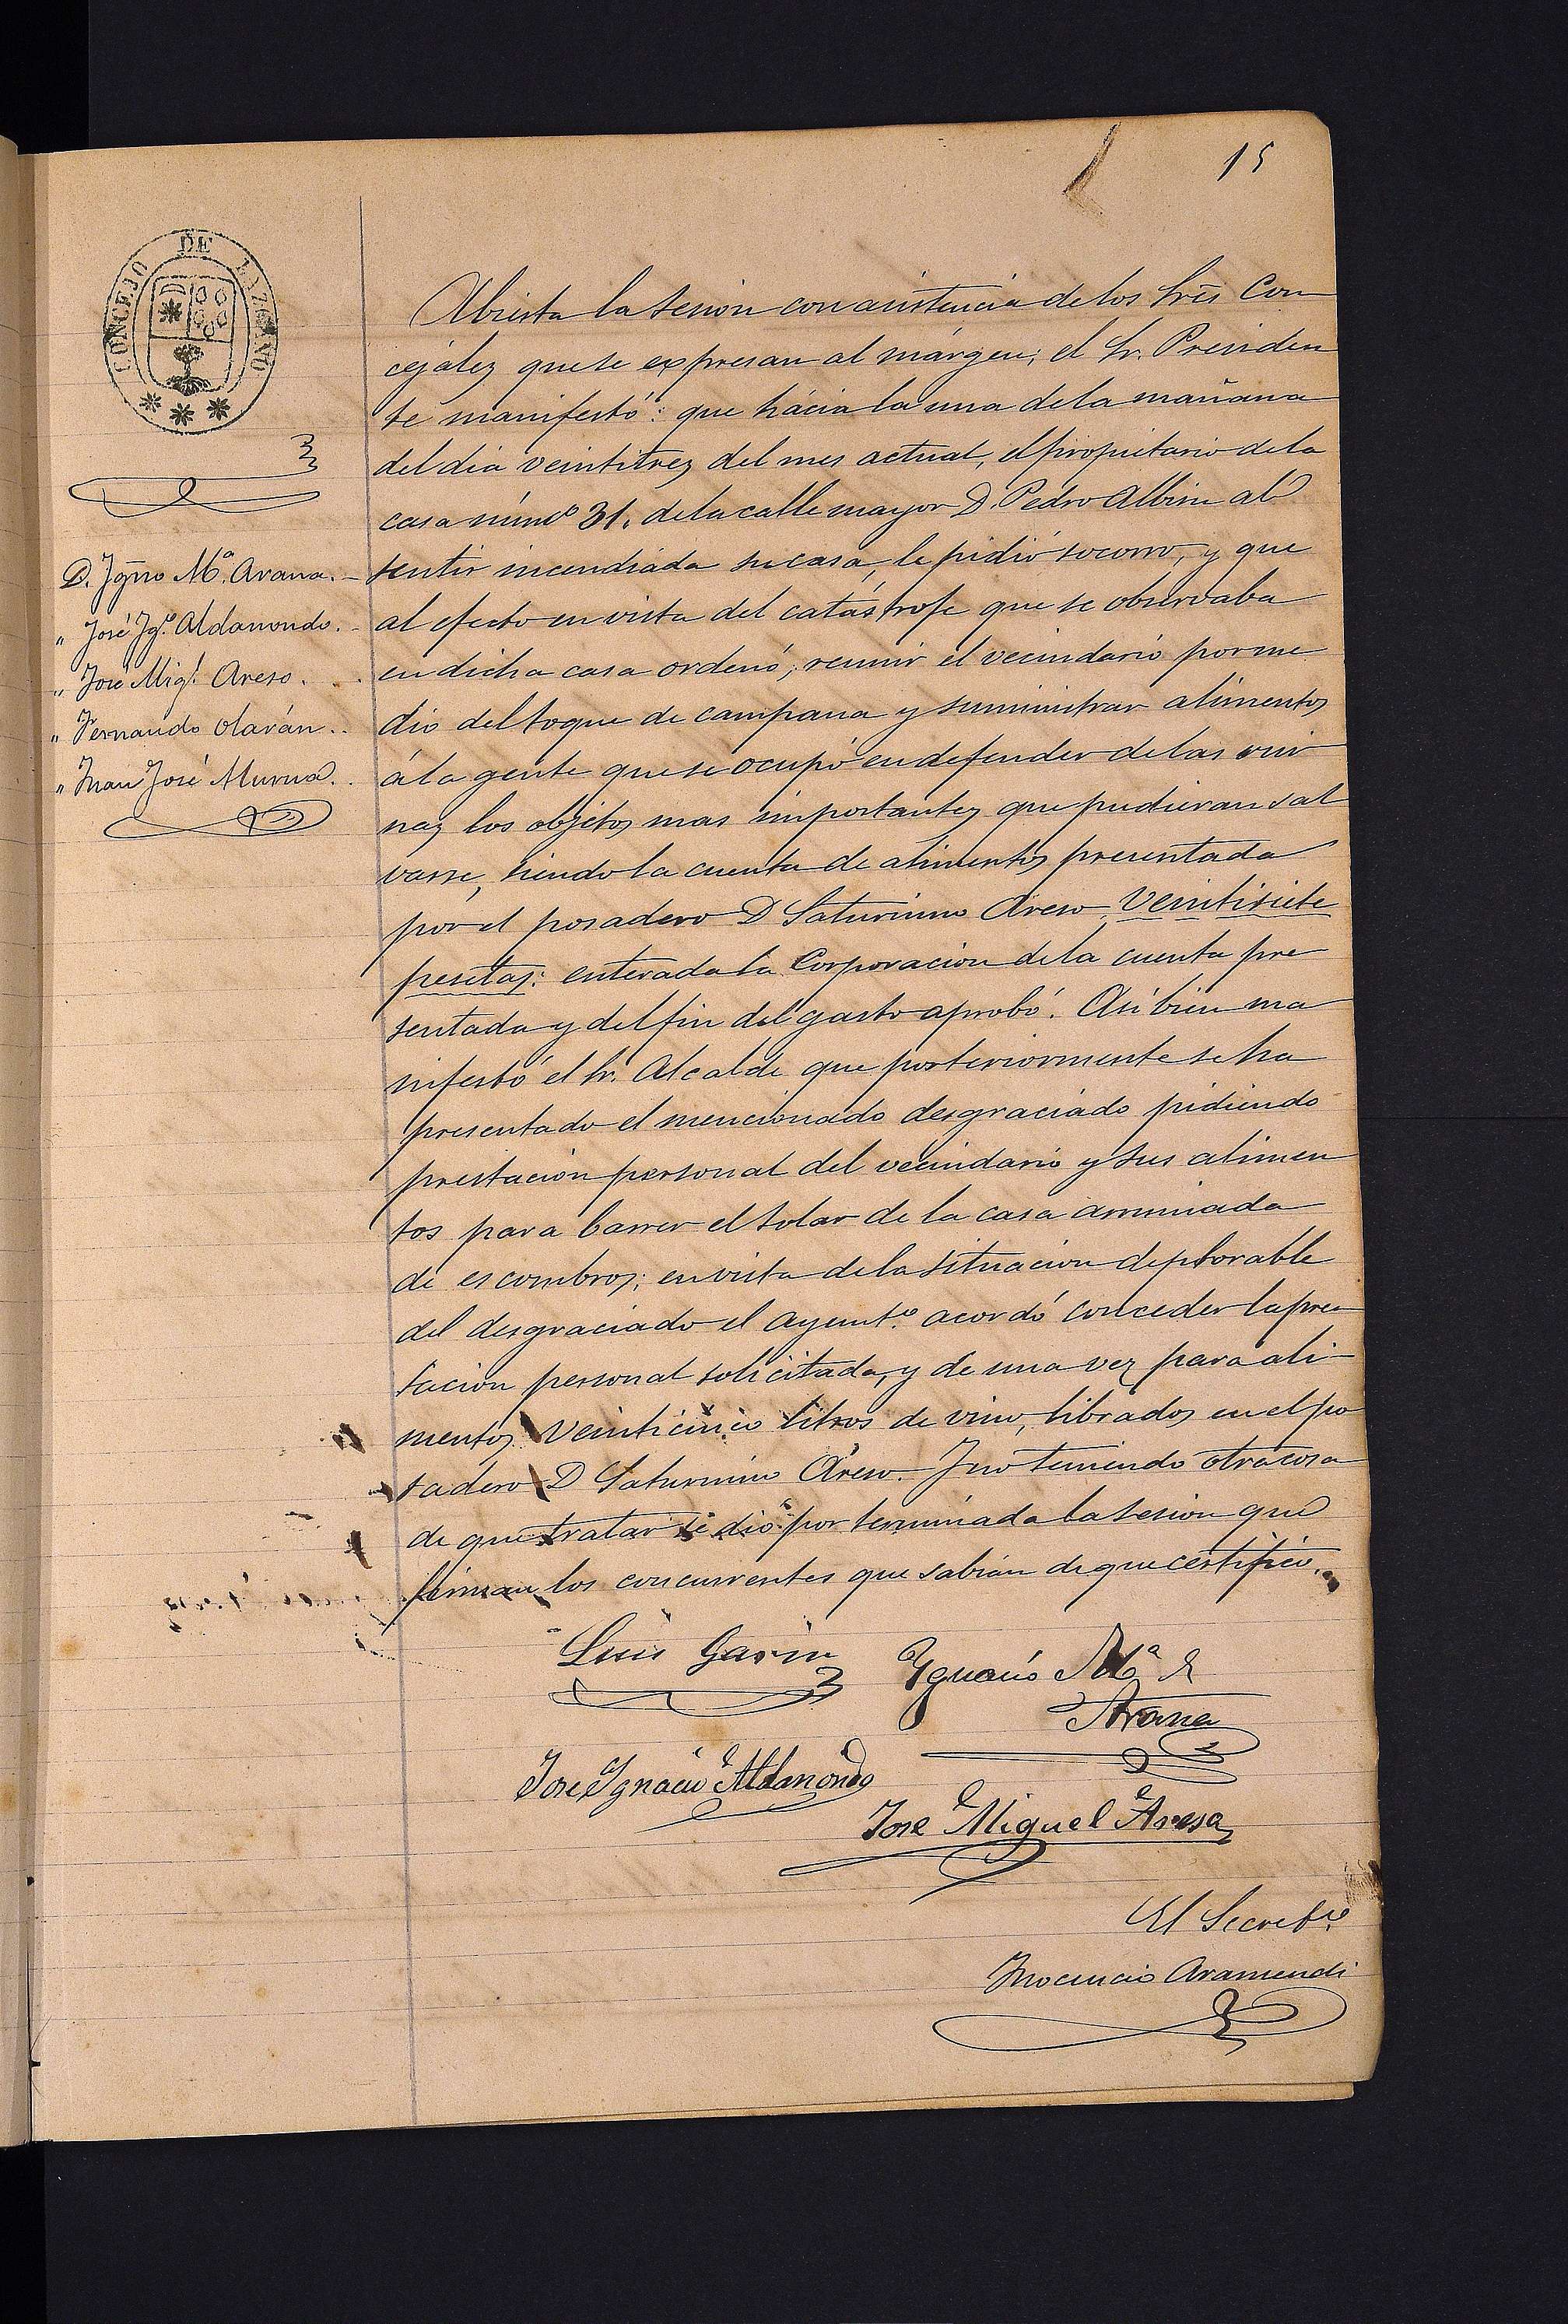 15
CONCEJO DE
D. Ygno Mª. Arana.
" José Ygº. Aldamondo.
" José Migl. Areso.
" Fernando Olarán.
" Juan José Murua.
Abierta la sesion con asistencia de los Sres Con
cejáles que se expresan al márgen; el Sr. Presiden
te manifestó: que hácia la una de la mañana
del dia veintitres del mes actual, el propietario de la
casa númº 31. de la calle mayor D. Pedro Albisu al
sentir incendiada su casa, le pidió socorro, y que
al efecto en vista del catástrofe que se observaba
en dicha casa ordenó, reunir el vecindario por me
dio del toque de campana y suministrar alimentos
á la gente que se ocupó en defender de las rui
nas los objetos mas importantes que pudieran sal
varse, siendo la cuenta de alimentos presentada
por el posadero D Saturnino Areso Veintisiete
pesetas: enterada la Corporacion de la cuenta pre
sentada y del fin del gasto aprobó. Asi bien ma
nifestó el Sr. Alcalde que posteriormente se ha
presentado el mencionado desgraciado pidiendo
prestacion personal del vecindario y sus alimen
tos para barrer el solar de la casa arruinada
de escombros; en vista de la situacion deplorable
del desgraciado el ayuntº. acordó conceder la pres
tacion personal solicitada, y de una vez para ali-
mentos Veinticinco litros de vino, librados en el po
sadero D Saturnino Areso. Y no teniendo otra cosa
de que tratar se dió por terminada la sesion que
firman los concurrentes que sabian de que certifico.
Luis Garin
Ygnacio Mª de
Arana
Jose Ygnacio Aldamondo
Jose Miguel Areso
El Secretrio
Inocencio Aramendi